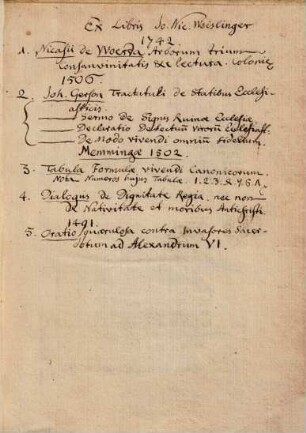 Ex Libris Jo. Nic. Weislinger
1742
1. Nicasii de Woerda Arborum trium
Consanguinitatis &c lectura. Coloniæ
1506.
2. Joh. Gerson Tractatuli de Statibus Ecclesi-
asticis.
Sermo de Signis Ruinæ Ecclesiæ
Declaratio Defectuum virorum Ecclesiast.
De Modo vivendi omnium fidelium.
Memminge 1502.
3. Tabula Formulæ vivendi Canonicorum.
Nota Numeros hujus Tabulæ 1. 2. 3. &
4. Dialogus de Dignitate Regia. nec non
de Nativitate et moribus Antichristi.
1491.
5. Oratio querulosa contra Invasores Sacer-
dotum ad Alexandrum VI.